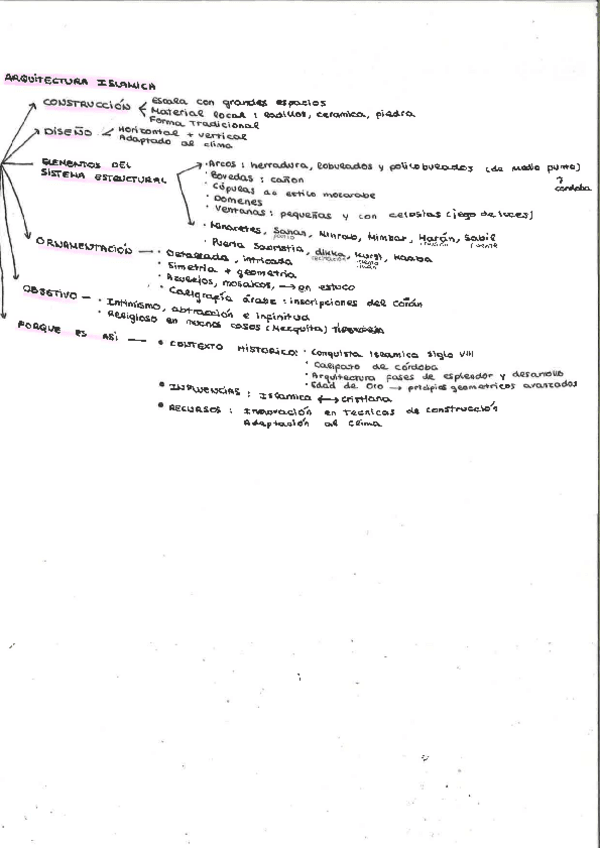 ARQUITECTURA ISLAMICA
CONSTRUCCIÓN
Escala con grandes espacios
Material local: ladillos, ceramica, piedra
Forma Tradicional
DISEÑO
Horizontal + vertical
Adaptado al clima
ELEMENTOS DEL
SISTEMA ESTRUCTURAL
· Arcos: herradura, lobulados y polilobulados (de medio punto)
cordoba
· Bovedas: cañon
· Cúpulas de estilo mocarabe
· Domenes
· Ventanas: pequeñas y con celosias (jego de luces)
· Minaretes, Sahan, Mihrab, Mimbar, Harán, Sabil
patio
fuente
· Puerta Sacristia, dikka, Kursi, Kaaba
ORNAMENTACIÓN
· Detallada, intricada
· Simetria + geometria
· Azulejos, mosaicos, → en estuco
· Caligrafía árabe: inscripciones del Corán
OBJETIVO
· Intimismo, abtracción e infinitud
· Religioso en muchos casos (Mezquita)
PORQUE ES ASI
• CONTEXTO HISTORICO:
· Conquista islamica siglo VIII
· Califato de córdoba
· Arquitectura fases de esplendor y desarrollo
· Edad de oro → geometricos avanzados
• INFLUENCIAS: Islamica ↔ cristiana
• RECURSOS: Innovación en tecnicas de construcción
Adaptación al clima